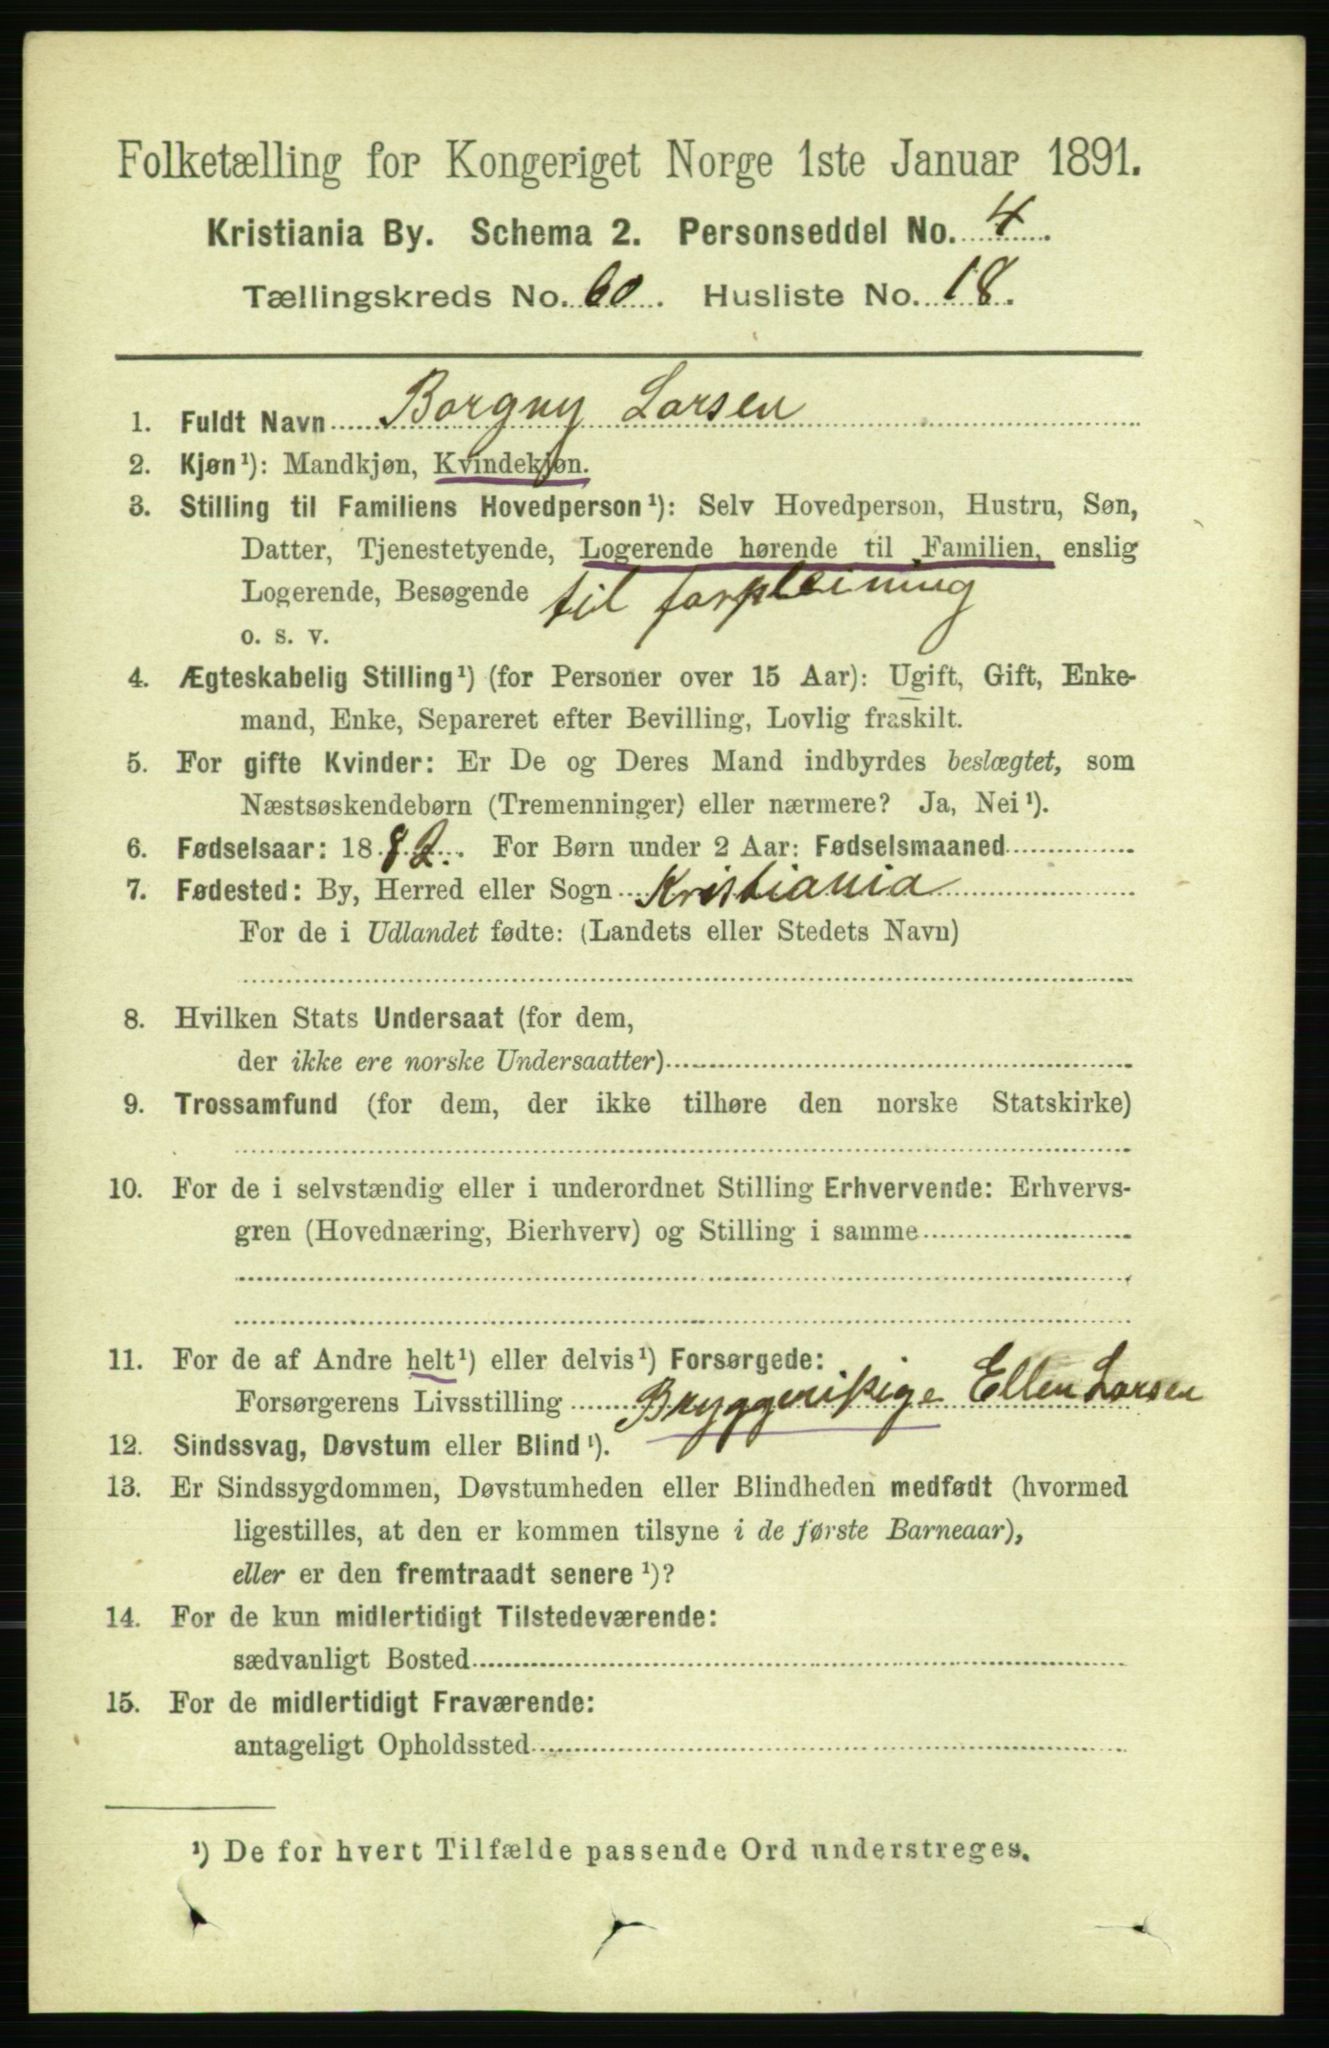 Folketælling for Kongeriget Norge 1ste Januar 1891.
Kristiania By. Schema 2. Personseddel No. 4.
Tællingskreds No. 60. Husliste No. 18.
1. Fuldt Navn Borgny Larsen
2. Kjøn¹): Mandkjøn, Kvindekjøn.
3. Stilling til Familiens Hovedperson¹): Selv Hovedperson, Hustru, Søn,
Datter, Tjenestetyende, Logerende hørende til Familien, enslig
Logerende, Besøgende til forpleining
o. s. v.
4. Ægteskabelig Stilling¹) (for Personer over 15 Aar): Ugift, Gift, Enke-
mand, Enke, Separeret efter Bevilling, Lovlig fraskilt.
5. For gifte Kvinder: Er De og Deres Mand indbyrdes beslægtet, som
Næstsøskendebørn (Tremenninger) eller nærmere? Ja, Nei¹).
6. Fødselsaar: 1882. For Børn under 2 Aar: Fødselsmaaned
7. Fødested: By, Herred eller Sogn Kristiania
For de i Udlandet fødte: (Landets eller Stedets Navn)
8. Hvilken Stats Undersaat (for dem,
der ikke ere norske Undersaatter)
9. Trossamfund (for dem, der ikke tilhøre den norske Statskirke)
10. For de i selvstændig eller i underordnet Stilling Erhvervende: Erhvervs-
gren (Hovednæring, Bierhverv) og Stilling i samme
11. For de af Andre helt¹) eller delvis¹) Forsørgede:
Forsørgerens Livsstilling Bryggeripige Ellen Larsen
12. Sindssvag, Døvstum eller Blind¹).
13. Er Sindssygdommen, Døvstumheden eller Blindheden medfødt (hvormed
ligestilles, at den er kommen tilsyne i de første Barneaar),
eller er den fremtraadt senere¹)?
14. For de kun midlertidigt Tilstedeværende:
sædvanligt Bosted
15. For de midlertidigt Fraværende:
antageligt Opholdssted
¹) De for hvert Tilfælde passende Ord understreges.